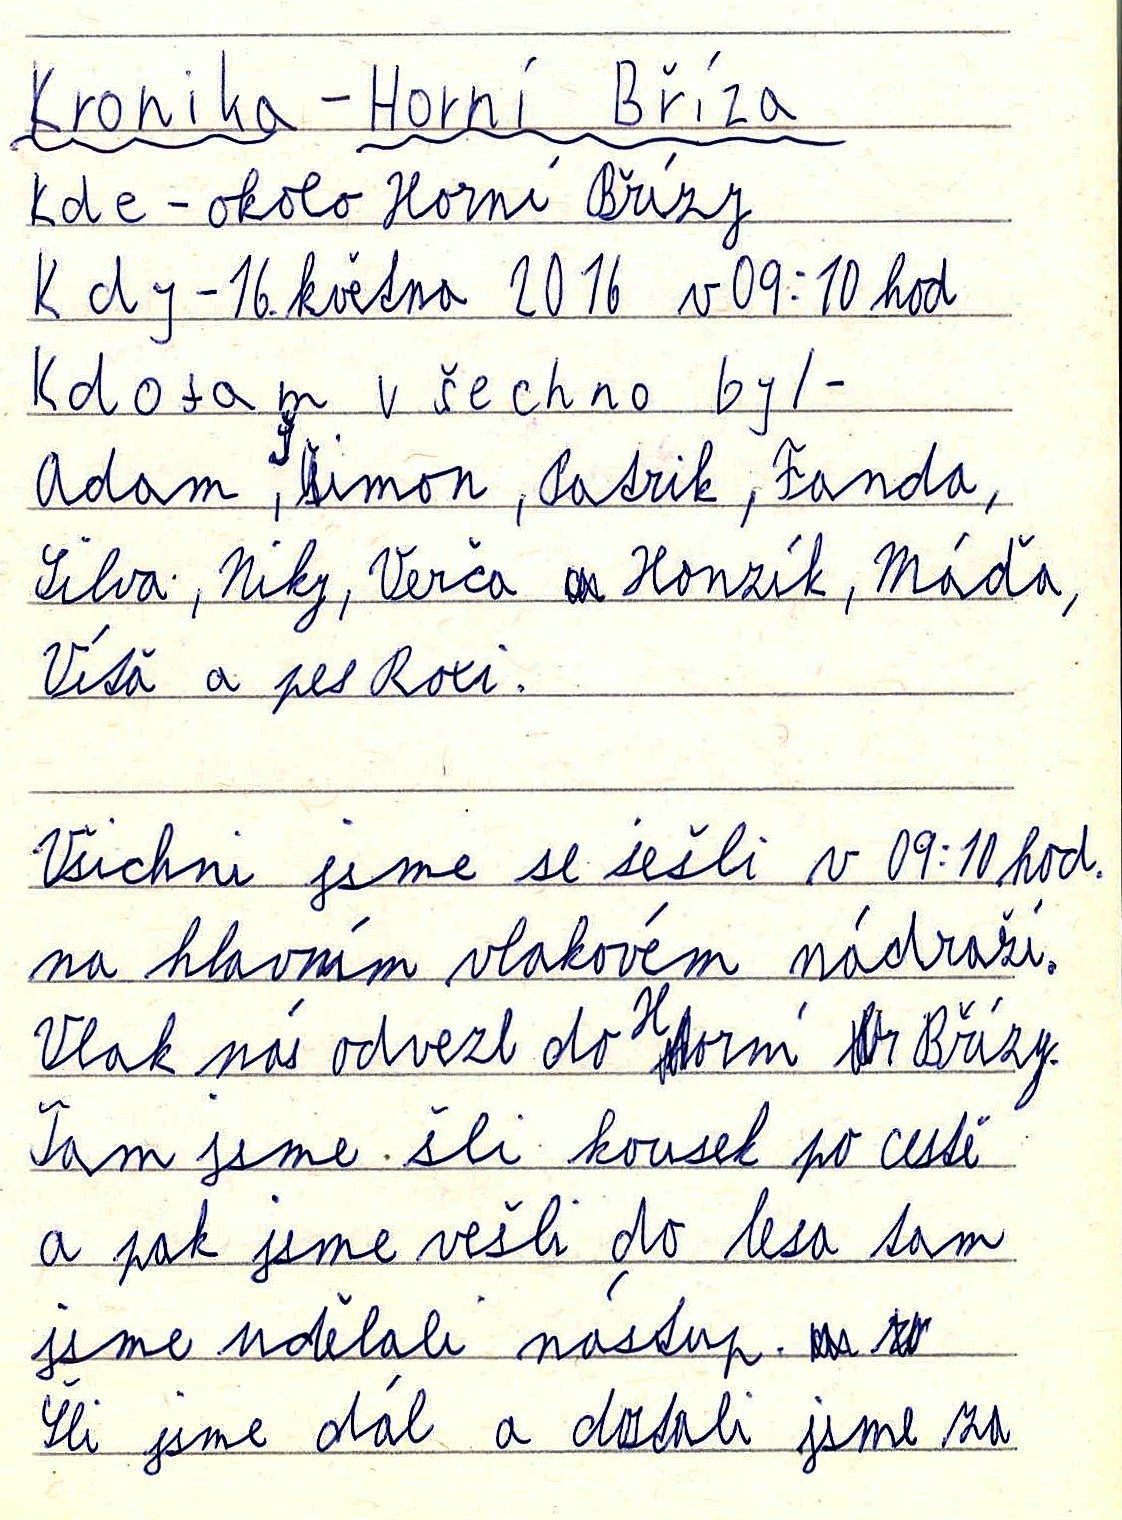 Kronika - Horní Bříza
Kde - okolo Horní Břízy
Kdy - 16. května 2016 v 09:10 hod
Kdo tam všechno byl -
Adam, Šimon, Patrik, Fanda,
Silva, Niky, Verča Honzík, Máďa,
Víťa a pes Roxi.
Všichni jsme se sešli v 09:10 hod.
na hlavním vlakovém nádraží.
Vlak nás odvezl do Horní Břízy.
Tam jsme šli kousek po cestě
a pak jsme vešli do lesa tam
jsme udělali nástup.
Šli jsme dál a dostali jsme za